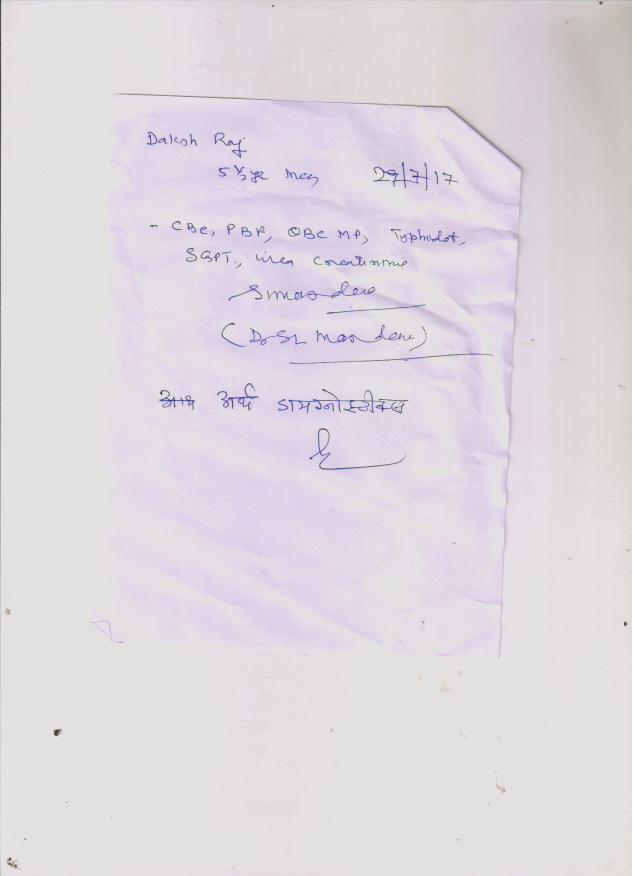 Daksh Raj
5 ½ yr 29/7/17
- CBC, PBF, QBC MP, Typhidot,
SGPT, urea Creatinine
(Dr SL Mandere)
अर्थ डायग्नोस्टीक्स